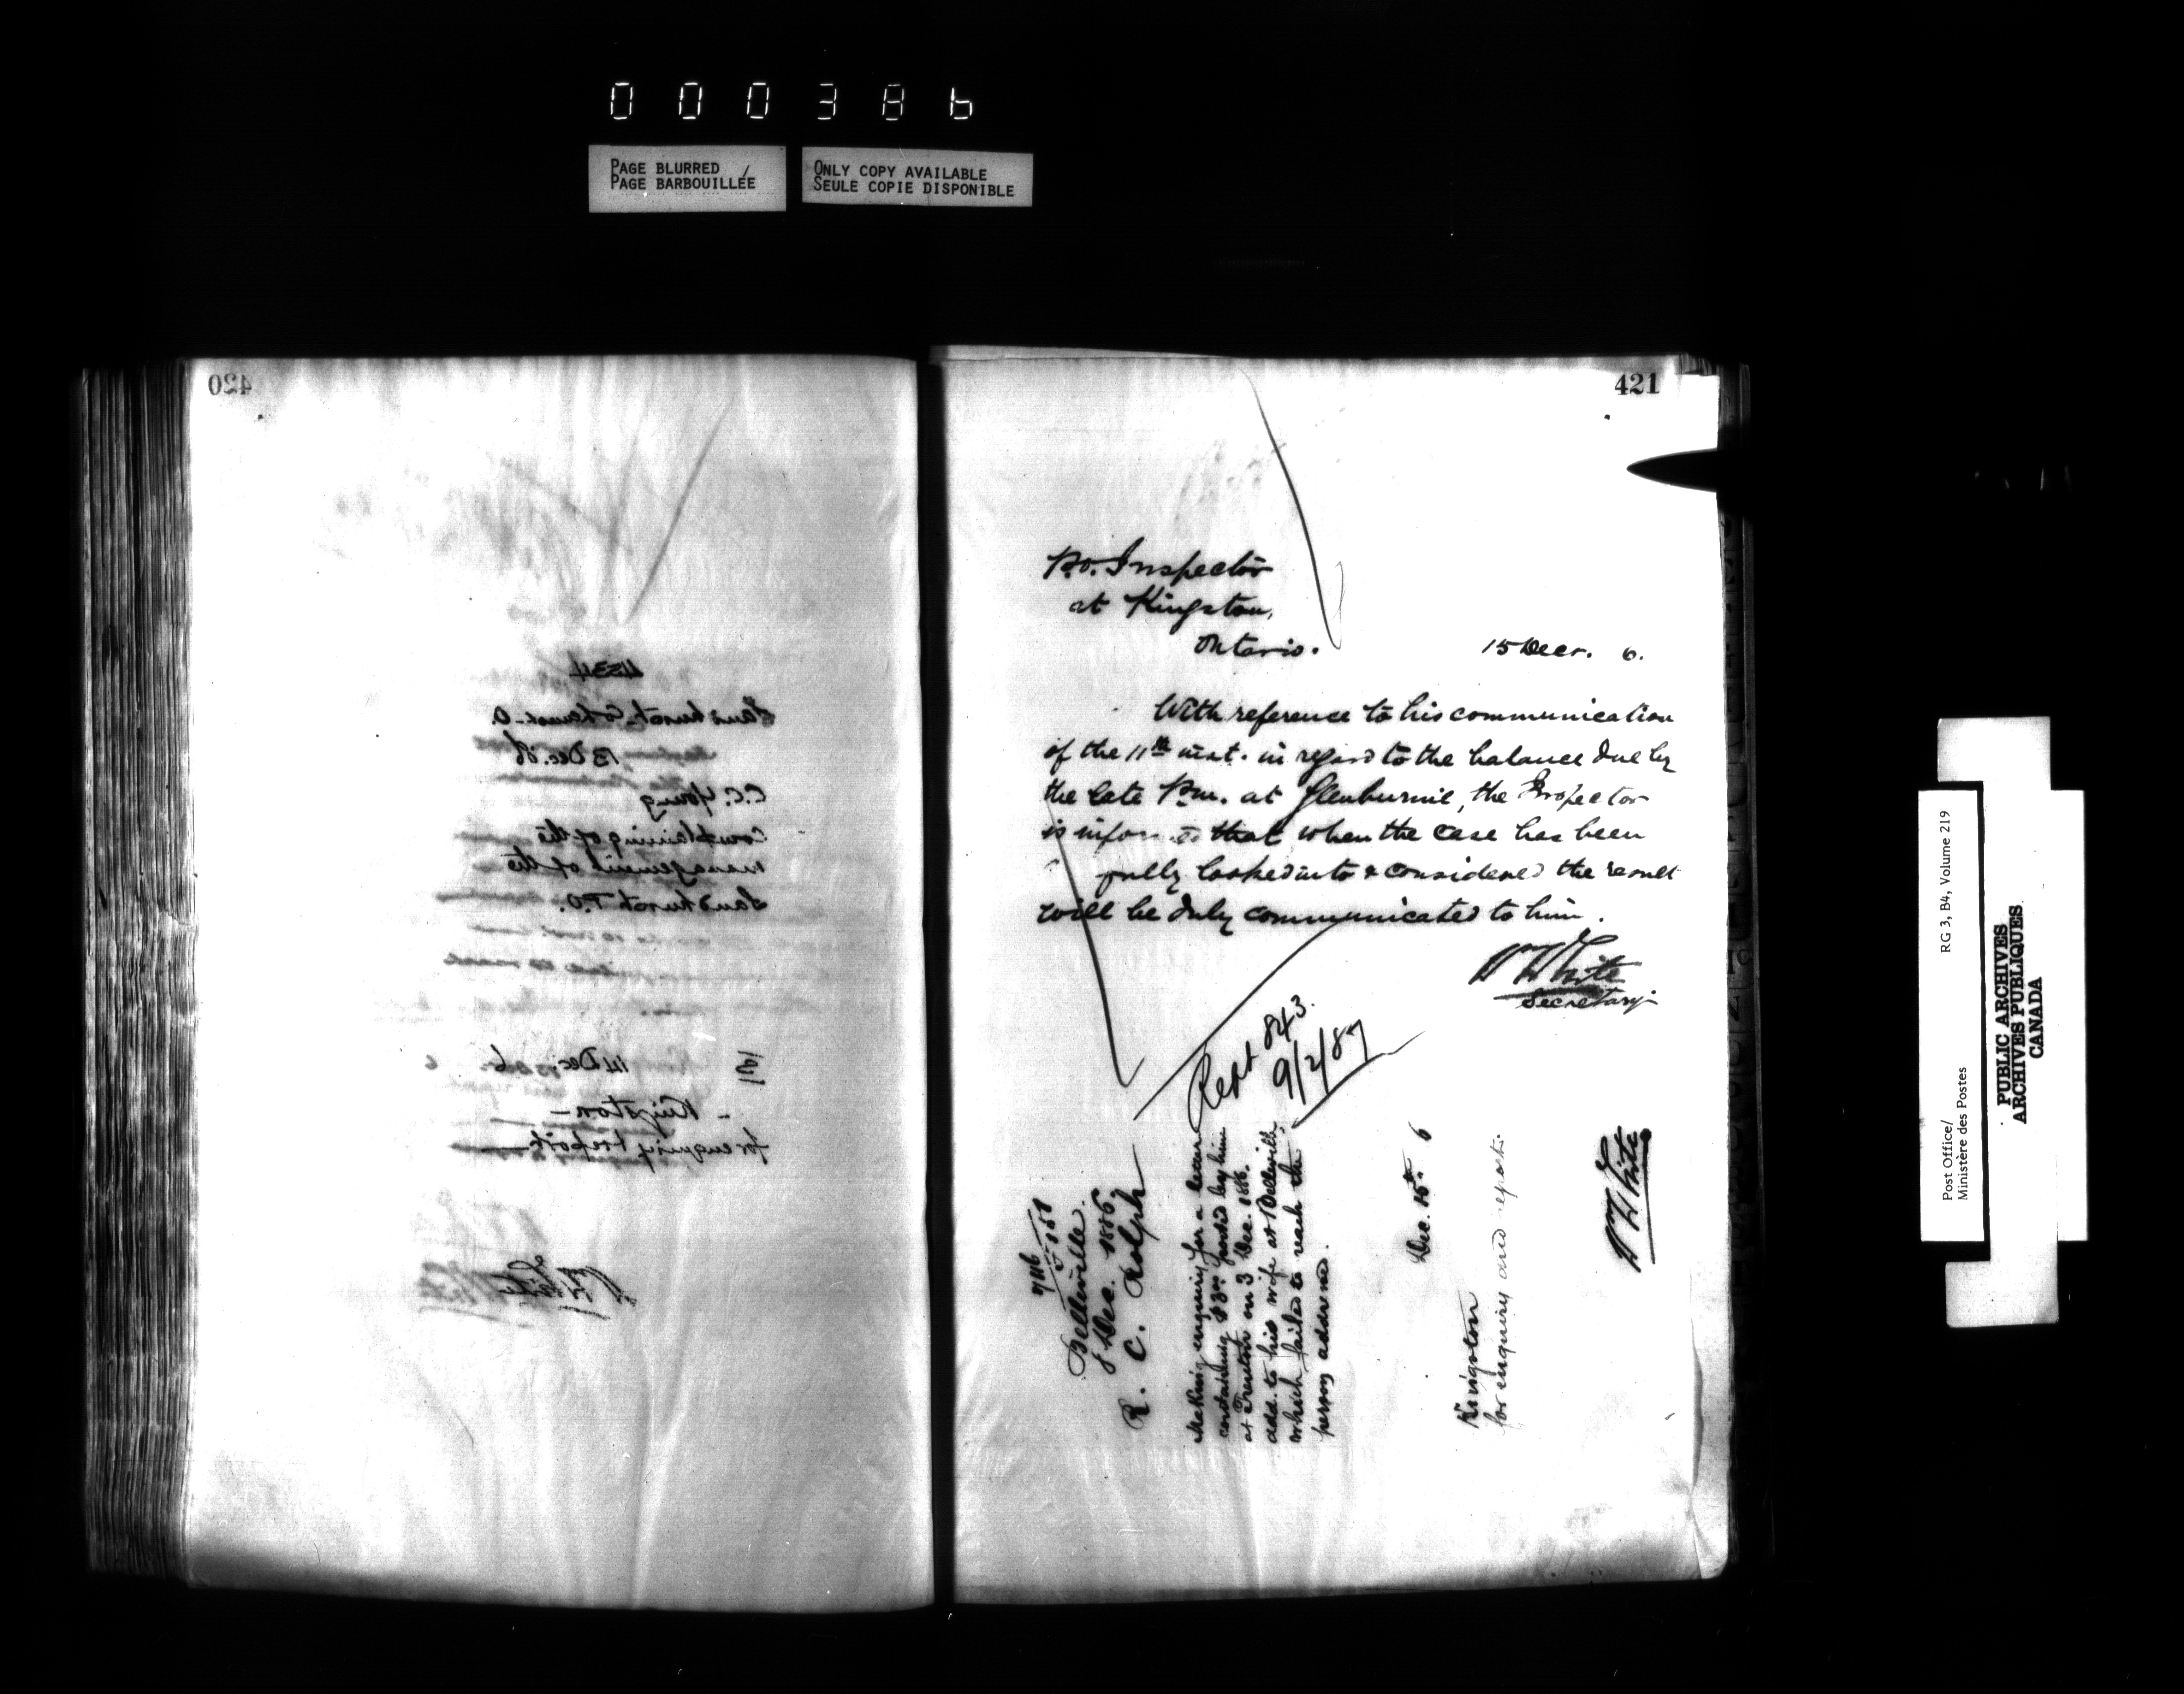 000386
PAGE BLURRED /
PAGE BARBOUILLÉE
ONLY COPY AVAILABLE
SEULE COPIE DISPONIBLE
420
4534
Sandhurst, Co Lennox - O.
13 Dec. 86
C.C. Young
complaining of the
management of the
Sandhurst P.O.
14 Dec. 6
- Kingston -
for enquiry & report
W White
421
P.O. Inspector
at Kingston,
Ontario.
15 Decr. 6.
With reference to his communication
of the 11th inst. in regard to the balance due by
the late P.m. at Glenburnie, the Inspector
is informed that when the case has been
fully looked into & considered the result
will be duly communicated to him.
Wm White
Secretary
Rept 843.
9/2/87
Belleville.
8 Dec. 1886.
R. C. Rolph
Making enquiry for a letter
containing posted by him
at Trenton on 3 Dec. 1886.
add. to his wife at Belleville,
which failed to reach the
person addressed.
Dec. 15th 6
Kingston
for enquiry and report.
Wm White
Post Office/
Ministère des Postes
RG 3, B4, Volume 219
PUBLIC ARCHIVES
ARCHIVES PUBLIQUES
CANADA